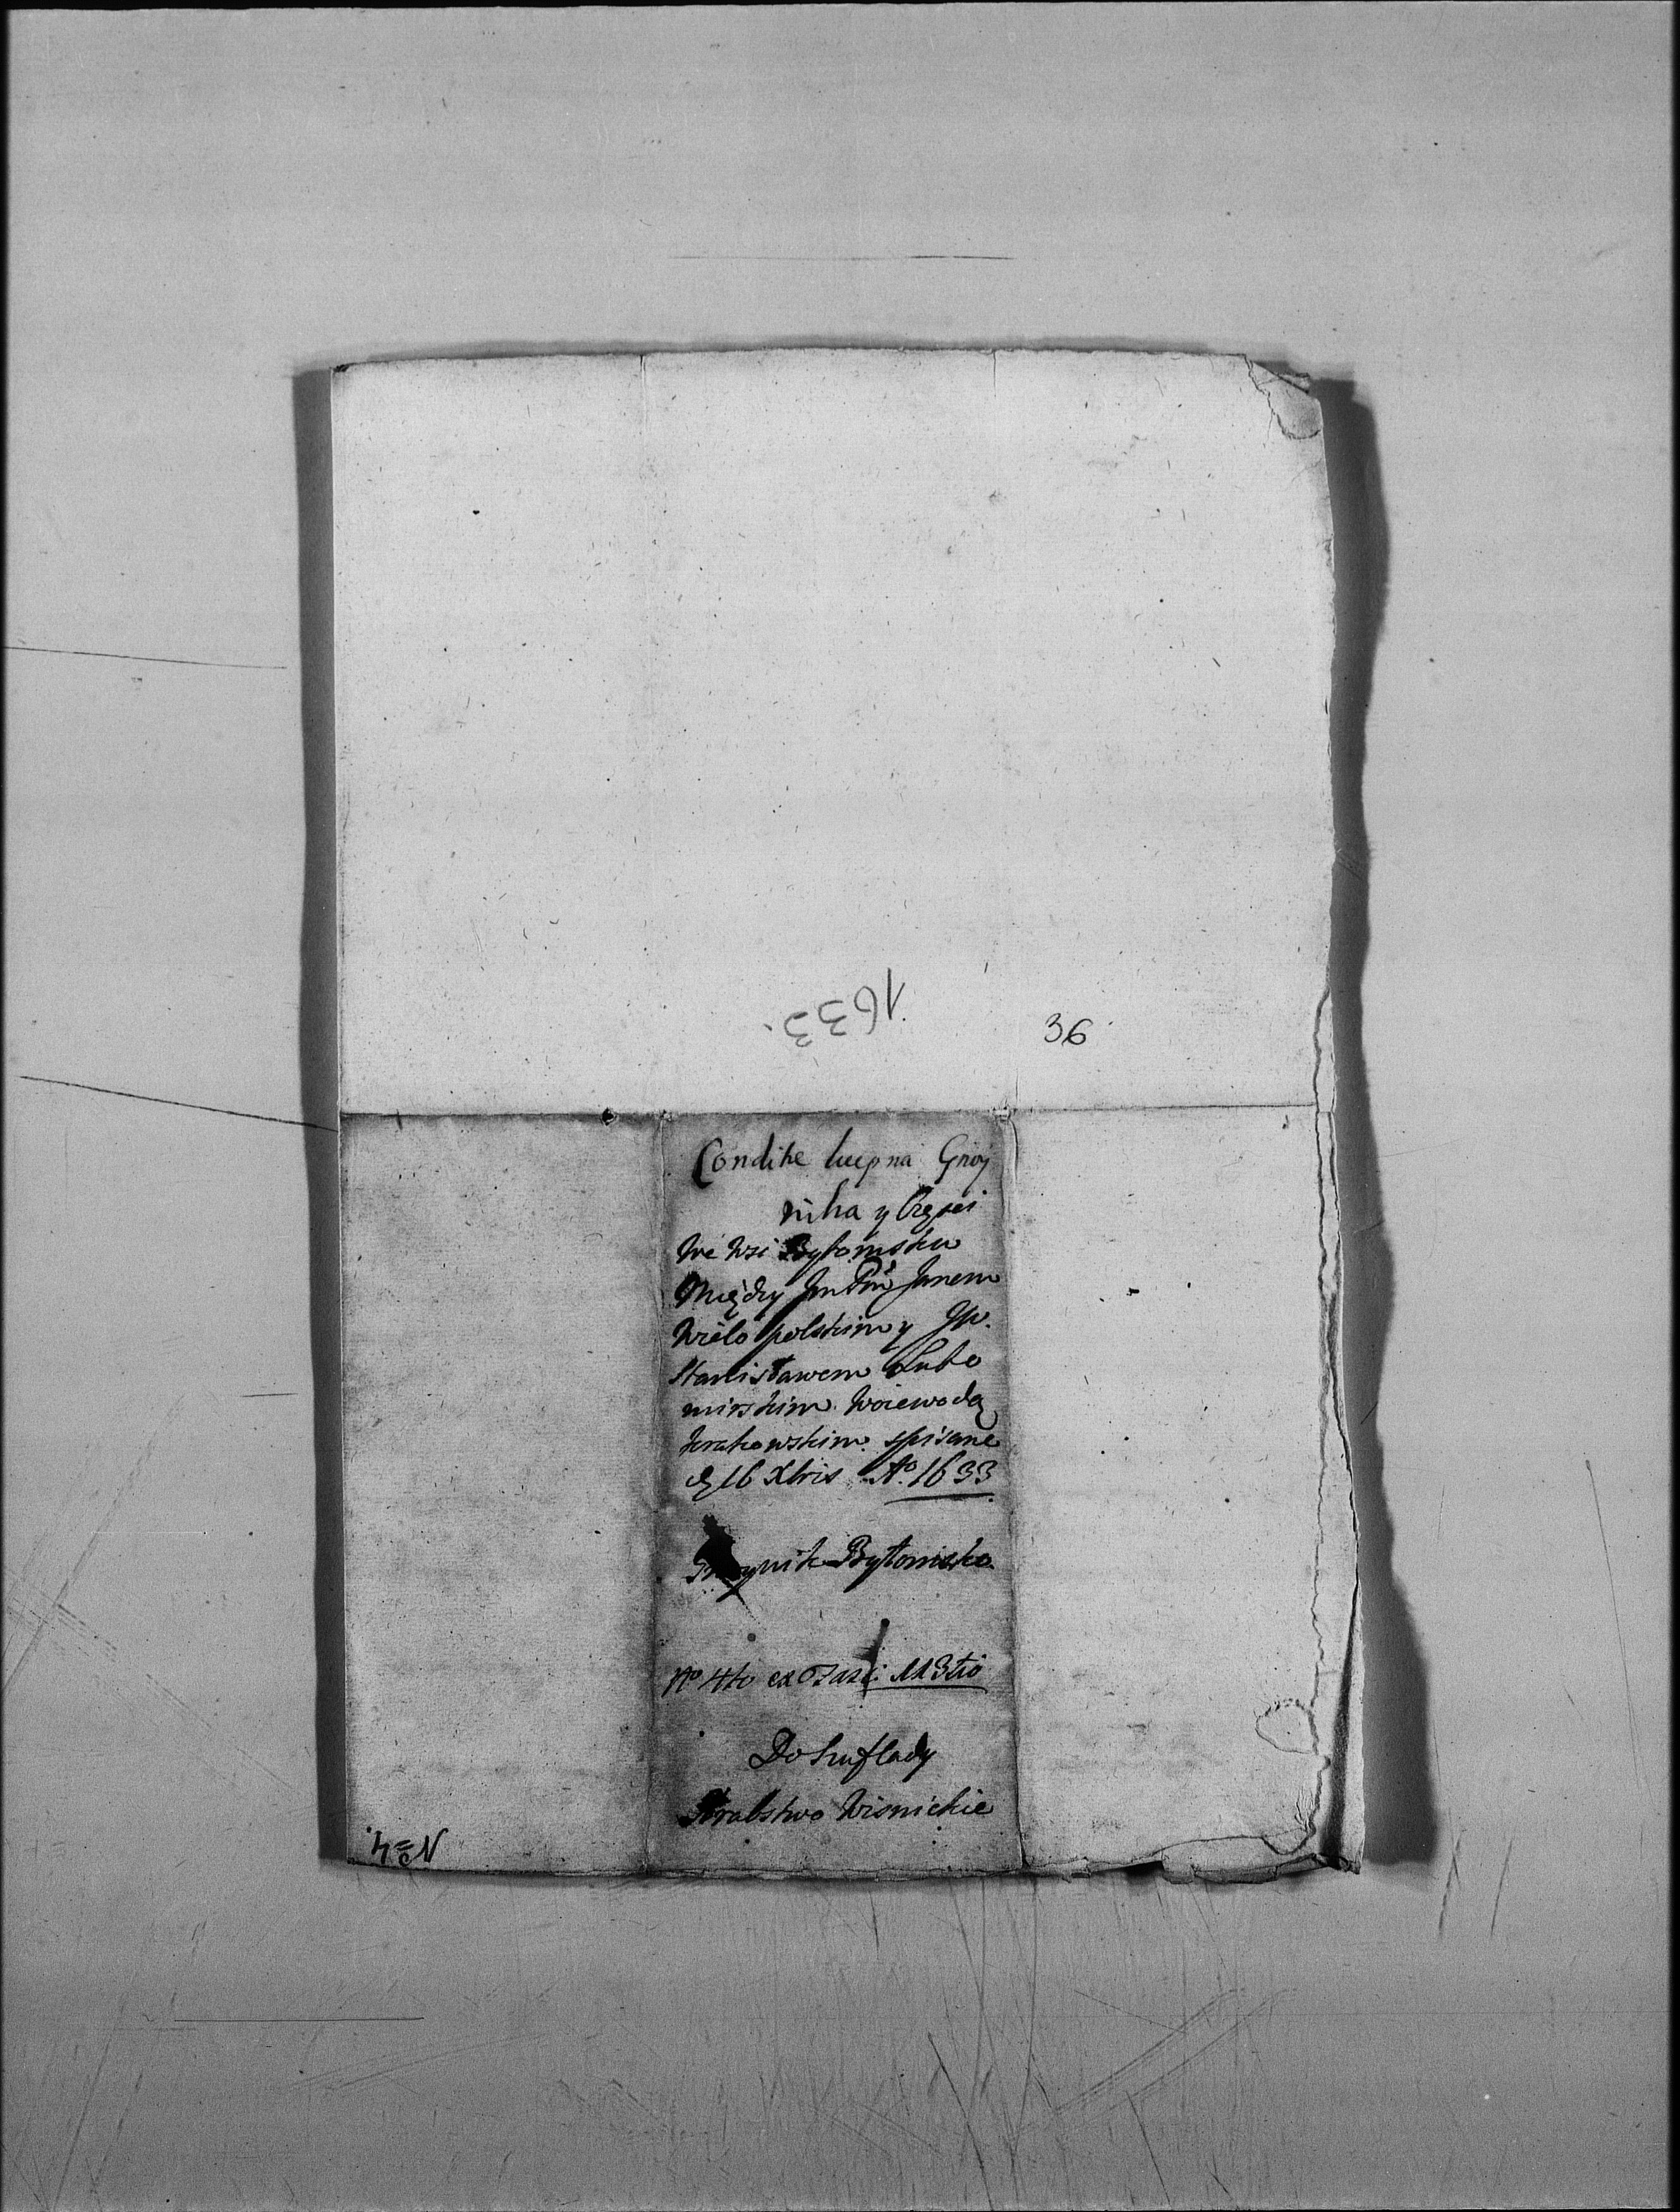 1633.
36
Conditie kupna Gnoj
nika y Części
We Wsi Bytomsku
Między Jm Pm̃ Janem
Wielopolskim y Jw.
Stanisławem Lubo
mirskim Woiewodą
Krakowskim spisane
d. 16 Xbris Aº 1633
Gnoynik Bytomsko.
Nº 4to ex Fasci: M3tio
Do Szuflady
Hrabstwo Wisnickie
Nº 4.